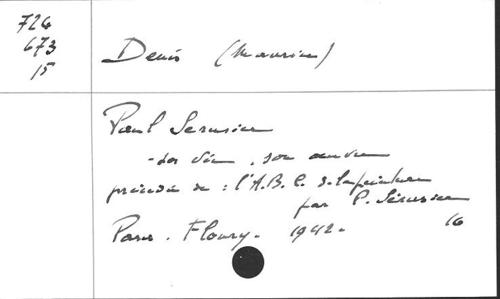 726
673
15
Denis (Maurice)
Paul Serusier
- sa vie, son œuvre
précédé de : l'A.B.C. de la peinture
par P. Sérusier
Paris. Floury. 1942.
16